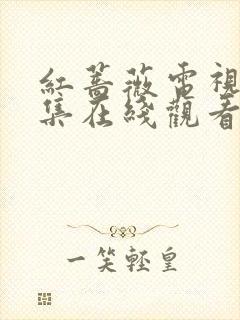 紅薔薇電視
集在綫觀看
一笑輕皇